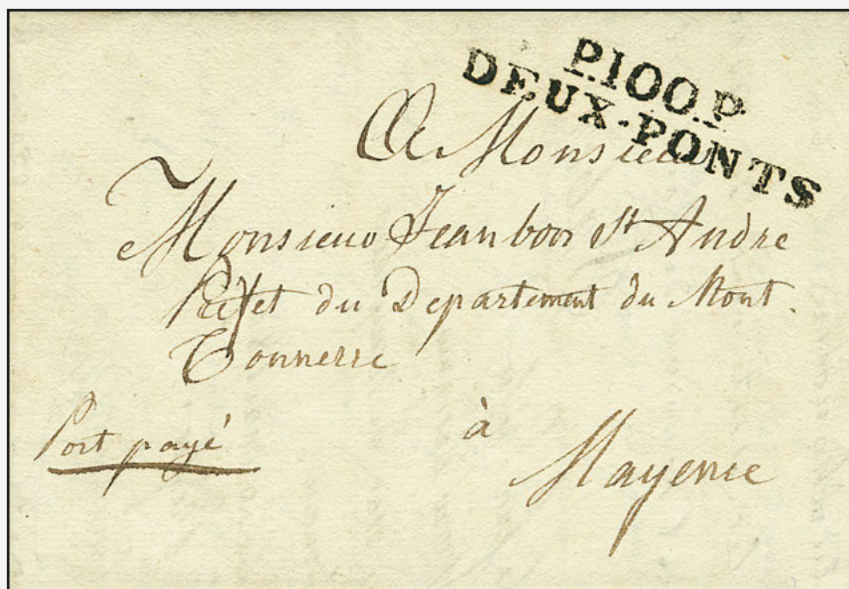 P.100.P.
DEUX-PONTS
A Monsieur
Monsieur Jeanbon St André
Préfet du Departement du Mont.
Tonnerre
à
Port payé
Mayence